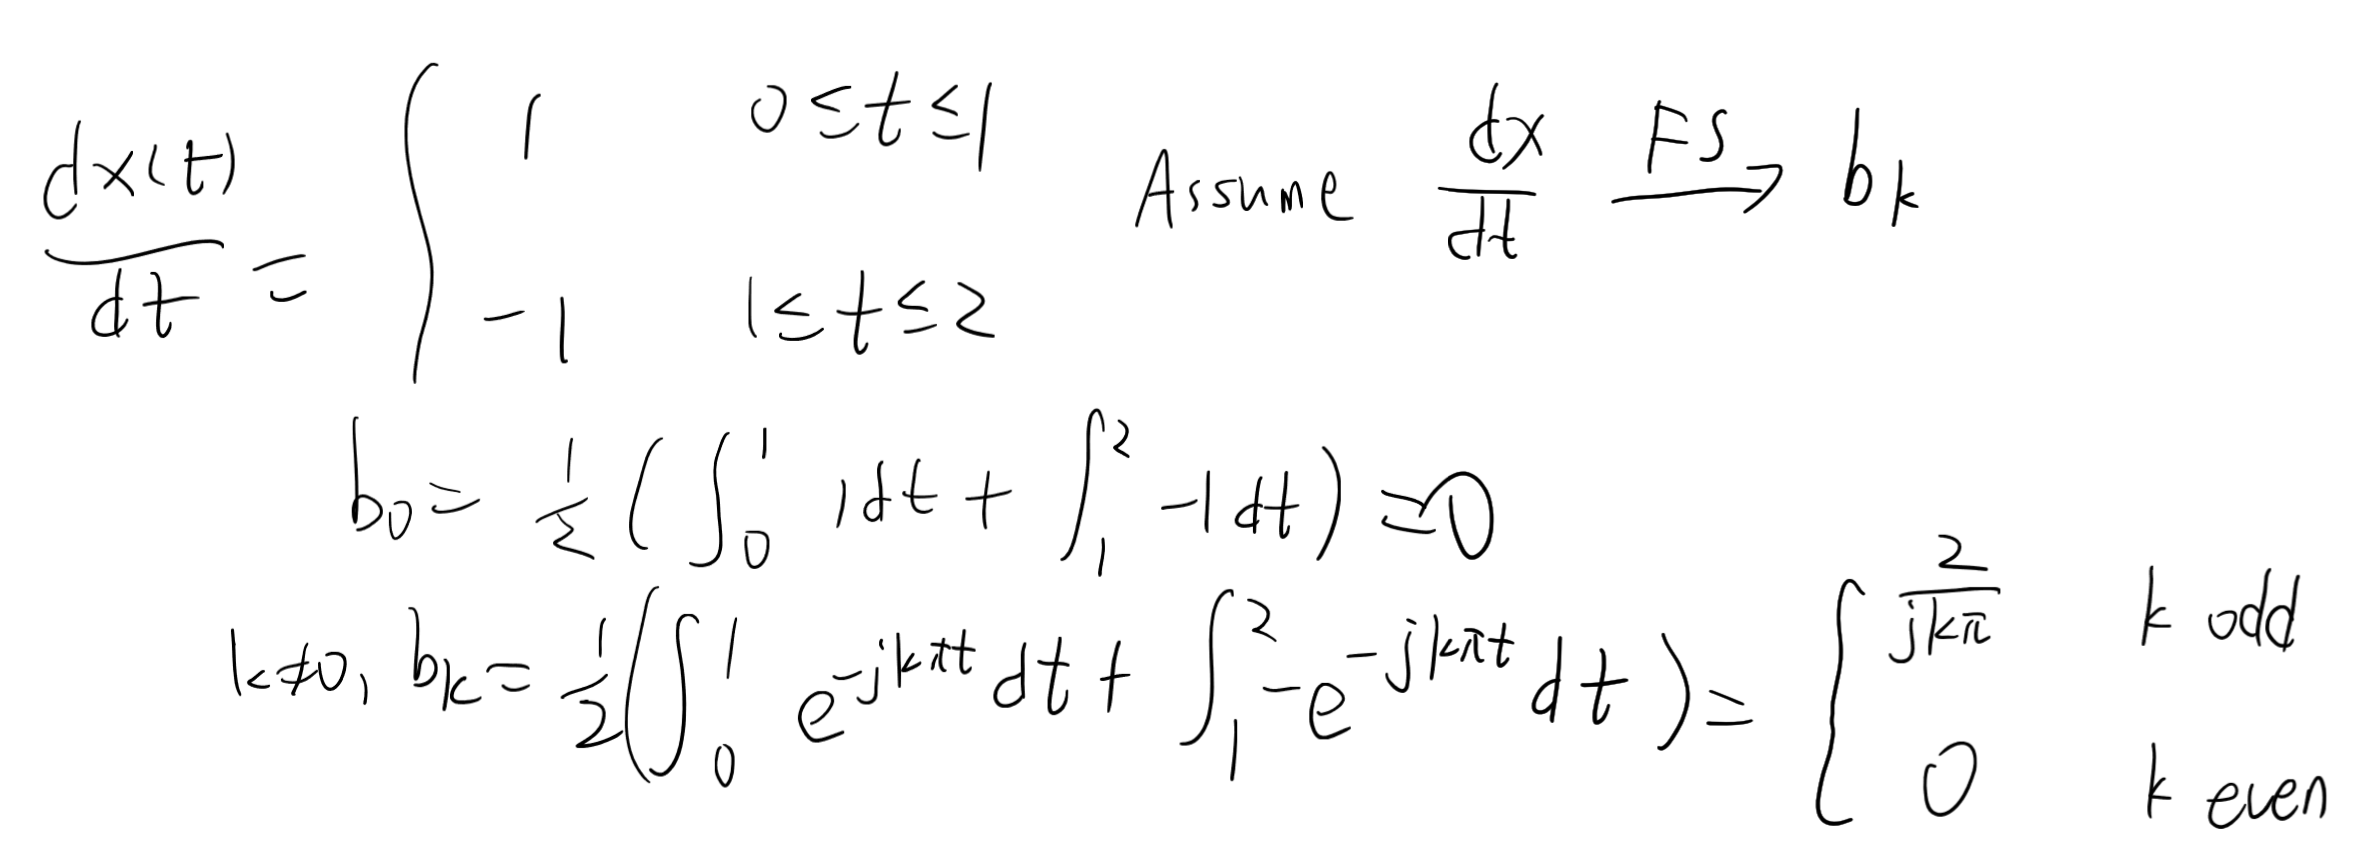 dx(t)/dt = { 1   0≤t≤1   Assume dx/dt FS→ bk
-1   1≤t≤2
b0 = 1/2 (∫₀¹ 1dt + ∫₁² -1dt) = 0
k≠0, bk = 1/2 (∫₀¹ e^(-jkπt) dt + ∫₁² -e^(-jkπt) dt) = { 2/(jkπ)   k odd
0   k even